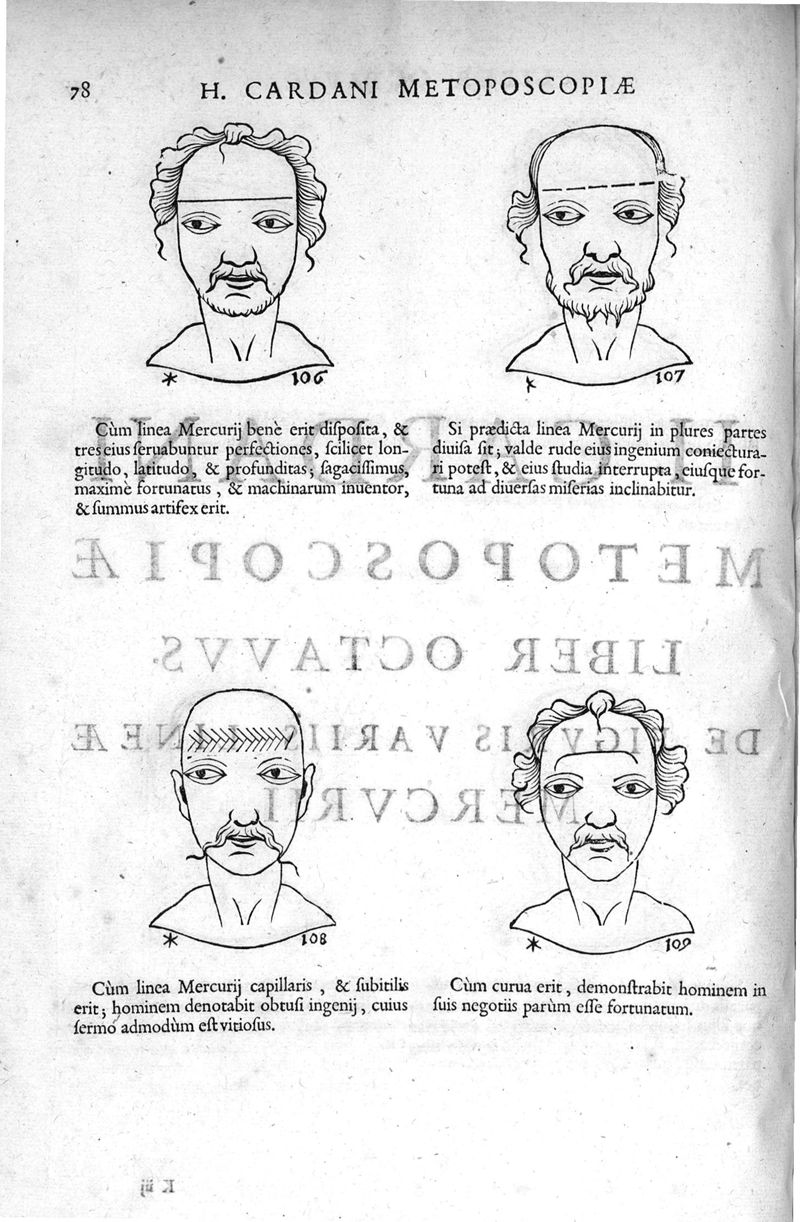 78 H. CARDANI METOPOSCOPIÆ
106
Cùm linea Mercurij benè erit diſpoſita, &
tres eius ſeruabuntur perfectiones, ſcilicet lon-
gitudo, latitudo, & profunditas; ſagaciſſimus,
maximè fortunatus, & machinarum inuentor,
& ſummus artifex erit.
107
Si prædicta linea Mercurij in plures partes
diuiſa ſit; valde rude eius ingenium coniectura-
ri poteſt, & eius ſtudia interrupta, eiuſque for-
tuna ad diuerſas miſerias inclinabitur.
H. CARDANI
METOPOSCOPIÆ
LIBER OCTAVVS.
DE FIGVRIS VARIIS LINEÆ
MERCVRII
108
Cùm linea Mercurij capillaris, & ſubitilis
erit; hominem denotabit obtuſi ingenij, cuius
ſermo admodùm eſt vitioſus.
109
Cùm curua erit, demonſtrabit hominem in
ſuis negotiis parùm eſſe fortunatum.
K iij